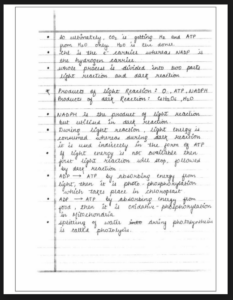 • So ultimately, CO₂ is getting H₂ and ATP
from H₂O only H₂O is the same
• is the e⁻ carrier whereas NADP is
the hydrogen carrier
• whole process is divided into two parts
light reaction and dark reaction
* Products of Light Reaction : O₂, ATP, NADPH
Products of Dark Reaction : Glucose, H₂O
• NADPH is the product of light reaction
but utilised in dark reaction
• During light reaction light energy is
consumed whereas during dark reaction
it is used indirectly in the form of ATP
• If light energy is not available then
first light reaction will stop, followed
by dark reaction
• ADP → ATP by absorbing energy from
light, then it is photo-phosphorylation
which takes place in chloroplast
• ADP → ATP by absorbing energy from
food, then it is oxidative-phosphorylation
in mitochondria
• splitting of water during photosynthesis
is called photolysis.